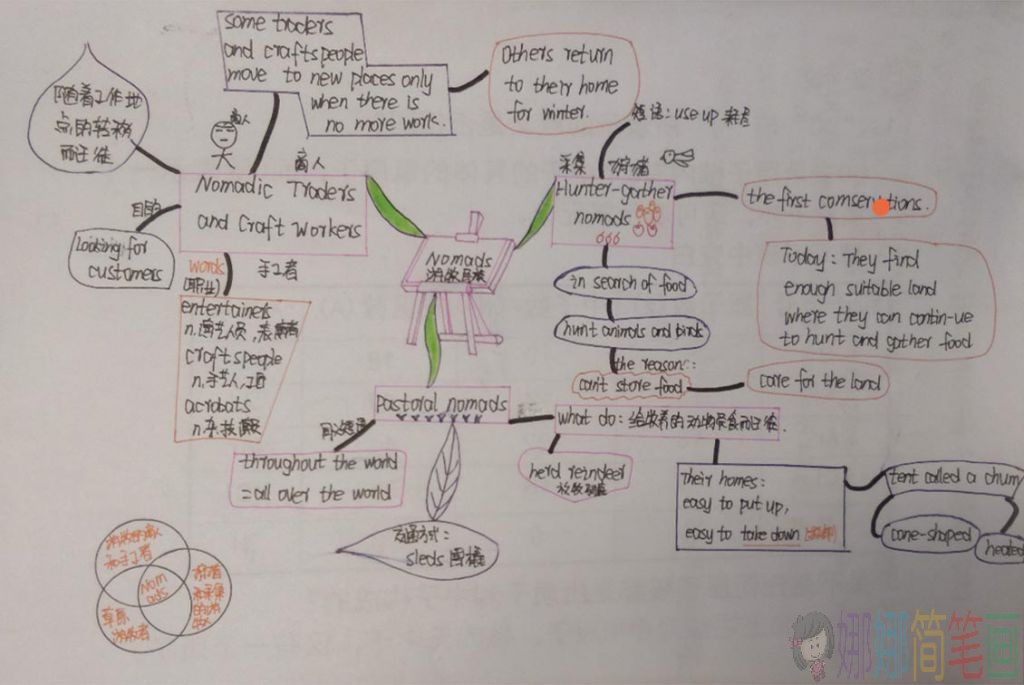 some traders
and craftspeople
move to new places only
when there is
no more work.
Others return
to their home
for winter.
随着工作地
点的转移
而迁徙
商人
商人
Nomadic Traders
and Craft Workers
目的
Looking for
customers
words
(职业)
手工者
entertainers
n.演艺人员,表演者
craftspeople
n.手艺人,工匠
acrobats
n.杂技演员
Nomads
游牧民族
短语: use up 耗尽
采集 狩猎
Hunter-gather
nomads
the first comservations.
Today: They find
enough suitable land
where they can contin-ue
to hunt and gather food
in search of food
hunt animals and birds
the reason:
can't store food
care for the land
Pastoral nomads
同义短语
throughout the world
=all over the world
交通方式:
sleds 雪橇
what do: 给牧养的动物觅食而迁徙.
herd reindeer
放牧驯鹿
Their homes:
easy to put up,
easy to take down
tent called a chum
cone-shaped
heated
游牧的商人
和手工者
Nom
ads
草原
游牧者
狩猎
和采集
的游
牧
娜娜简笔画